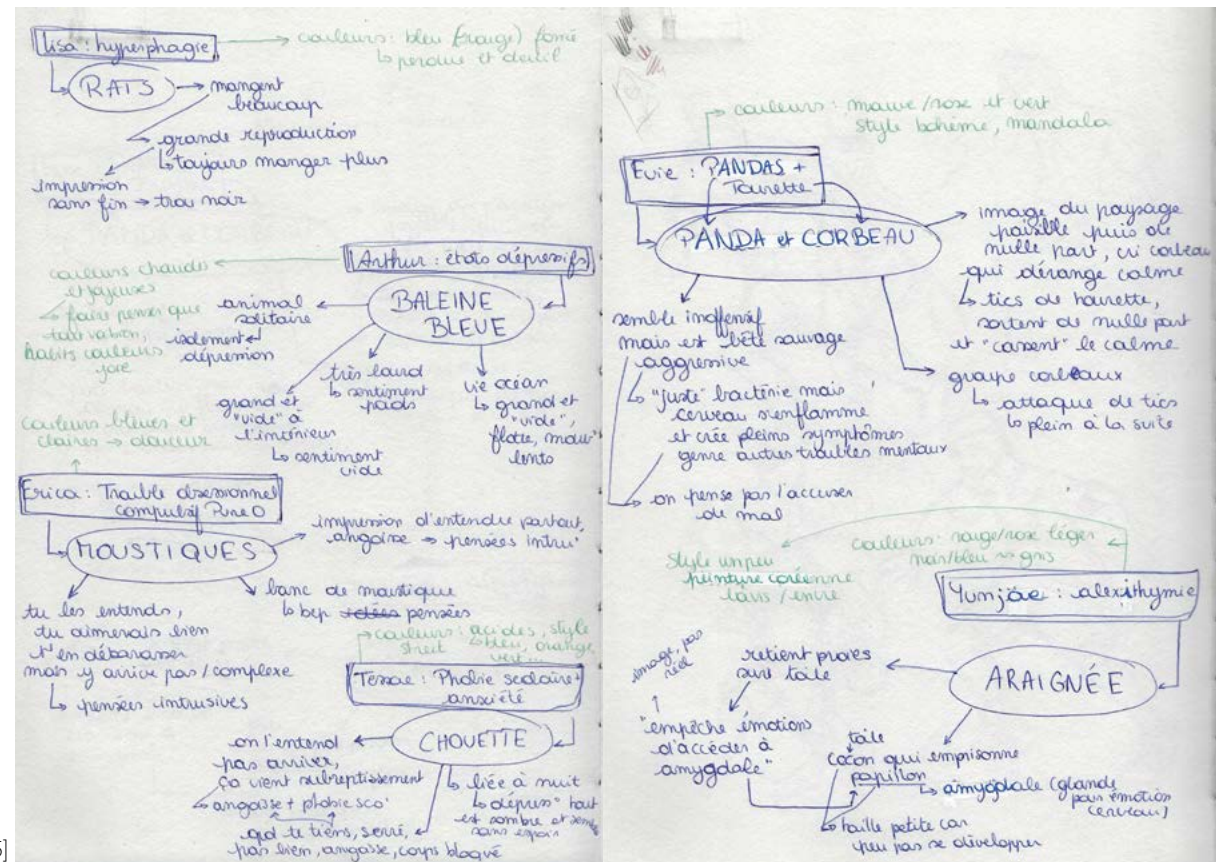 Lisa : hyperphagie
couleurs : bleu (rouge) foncé
↳ perdue et deuil
RATS
mangent
beaucoup
grande reproduction
↳ toujours manger plus
impression
sans fin → trou noir
Arthur : états dépressifs
couleurs chaudes
et joyeuses
↳ faire penser que
tout va bien,
habits couleurs
joie
BALEINE
BLEUE
animal
solitaire
isolement
dépression
grand et
"vide" à
l'intérieur
↳ sentiment
vide
très lourd
↳ sentiment
poids
vie océan
↳ grand et
"vide",
flotte, mouv
lents
couleurs bleues et
claires → douceur
Erica : Trouble obsessionnel
compulsif Pure O
MOUSTIQUES
impression d'entendre partout,
angoisse → pensées intru
banc de moustique
↳ bcp idées pensées
tu les entends,
tu aimerais bien
t'en débarasser
mais y arrive pas / complexe
↳ pensées intrusives
couleurs : acides, style
street
↳ bleu, orange,
vert...
Tessae : Phobie scolaire +
anxiété
CHOUETTE
on l'entend
pas arriver,
ça vient subreptissement
↳ angoisse + phobie sco
qd te tiens, serré,
pas bien, angoisse, corps bloqué
↳ liée à nuit
↳ dépress° tout
est sombre et semble
sans espoir
couleurs : mauve / rose et vert
style bohème, mandala
Evie : PANDAS +
Tourette
PANDA et CORBEAU
image du paysage
paisible puis de
nulle part, cri corbeau
qui dérange calme
↳ tics de tourette,
sortent de nulle part
et "cassent" le calme
groupe corbeaux
↳ attaque de tics
↳ plein à la suite
semble inoffensif
mais est bête sauvage
aggressive
↳ "juste" bactérie mais
cerveau s'enflamme
et crée pleins symptômes
genre autres troubles mentaux
on pense pas l'accuser
de mal
couleurs : rouge/rose léger
noir/bleu → gris
style un peu
peinture coréenne
lavis / encre
Yunjae : alexithymie
ARAIGNÉE
retient proies
sur toile
image, pas
réel
"empêche émotions
d'accéder à
amygdale"
toile
cocon qui emprisonne
papillon
↳ amygdale (glande
pour émotion
cerveau)
↳ taille petite car
peu pas se développer